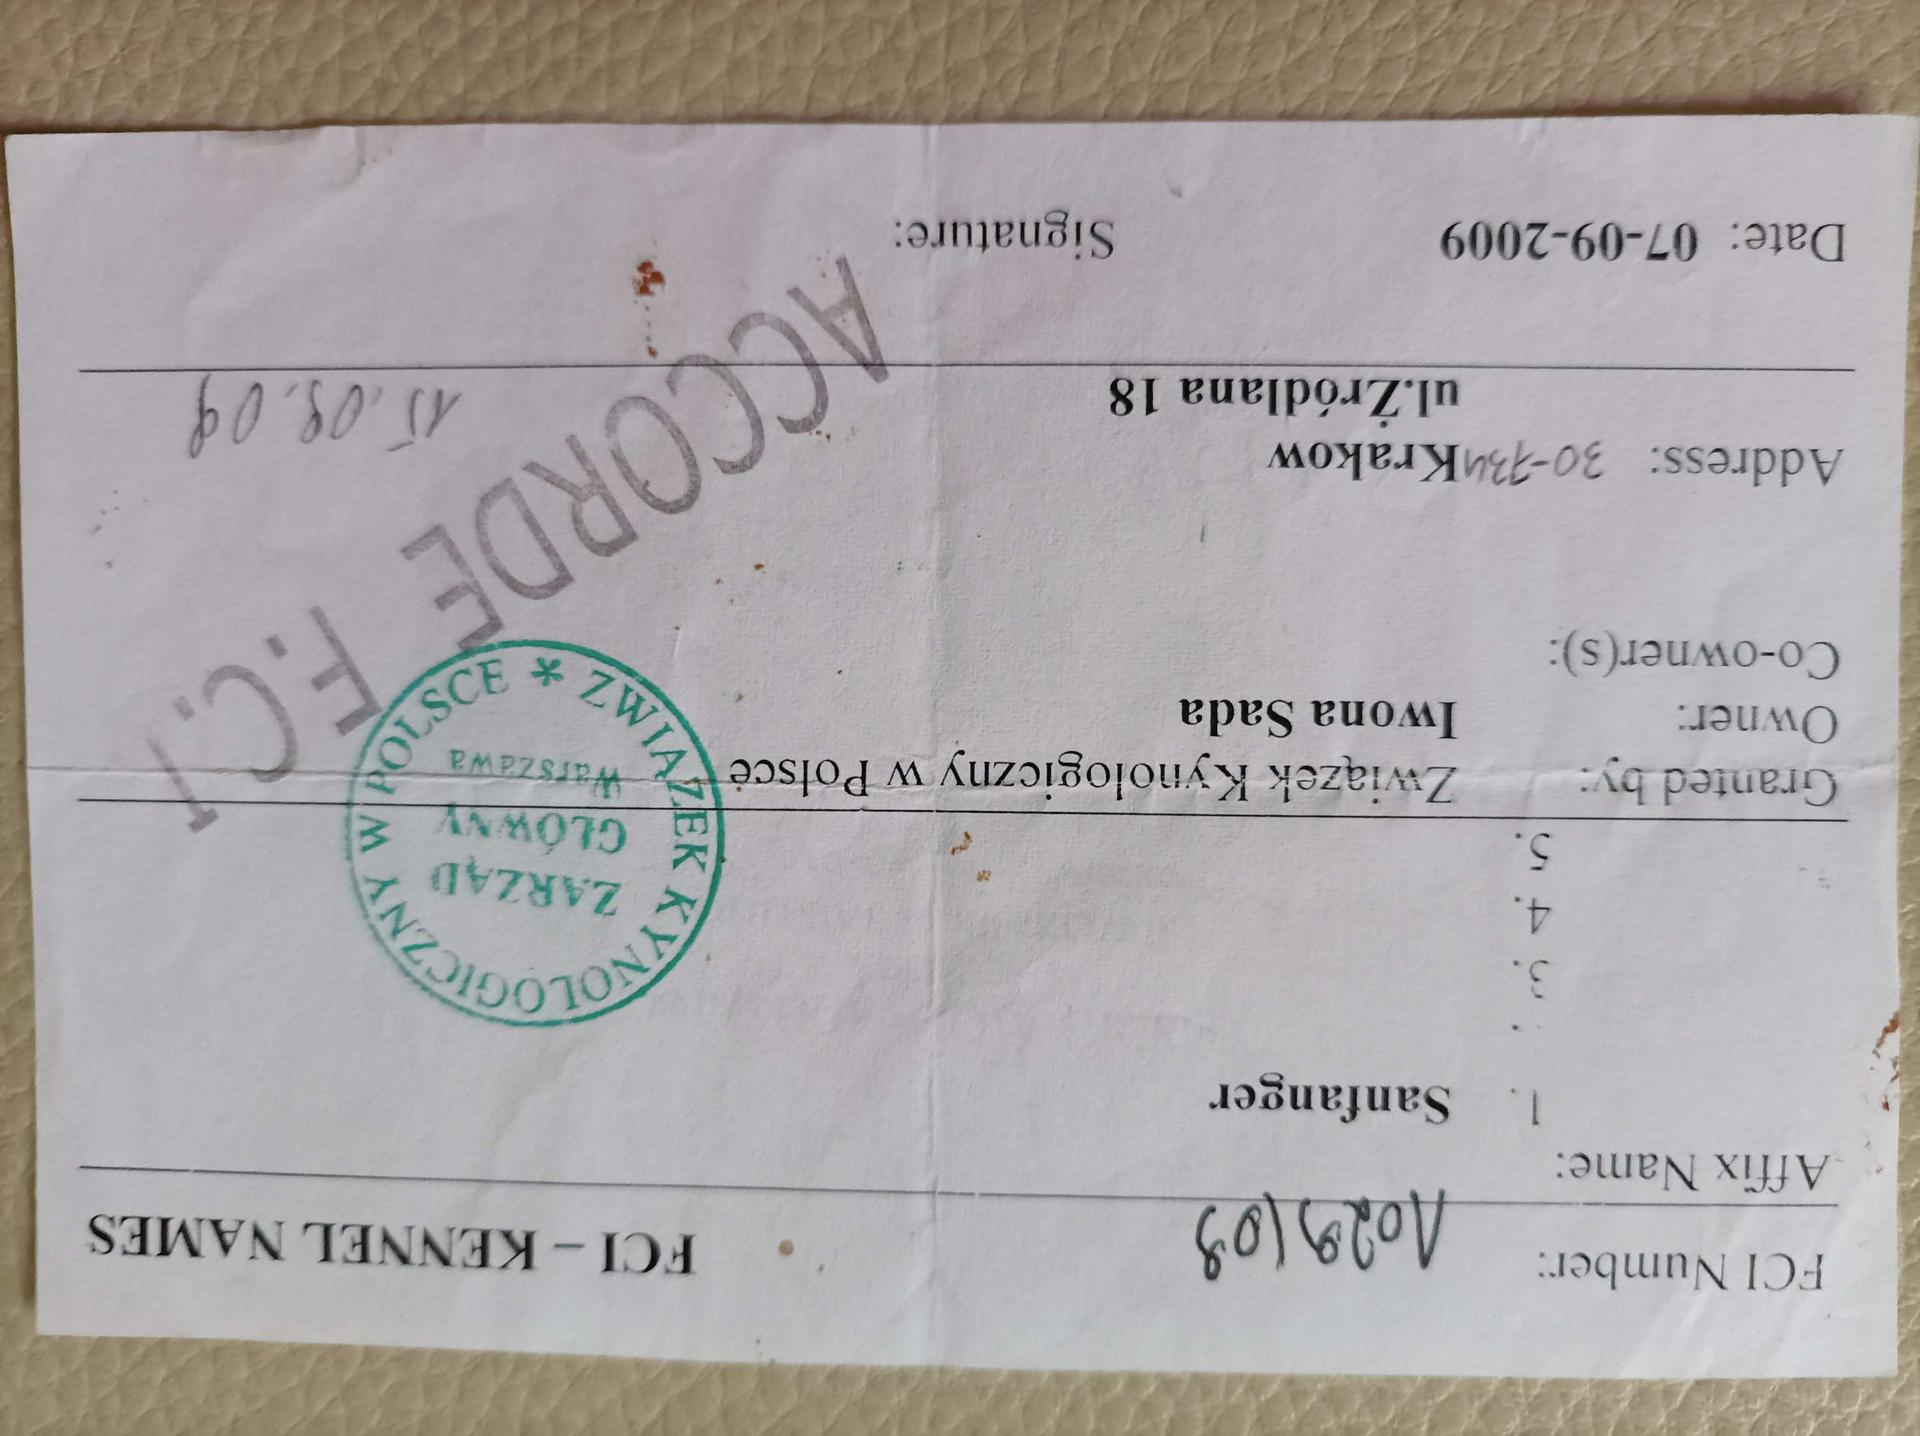 FCI Number: 1029/09 FCI – KENNEL NAMES
Affix Name:
1. Sanfanger
.
3.
4.
5.
Granted by: Związek Kynologiczny w Polsce
Owner: Iwona Sada
Co-owner(s):
ZWIĄZEK KYNOLOGICZNY W POLSCE *
ZARZĄD
GŁÓWNY
Warszawa
ACCORDE F.C.I
Address: 30-734 Krakow
ul.Źródlana 18
15.09.09
Date: 07-09-2009 Signature: